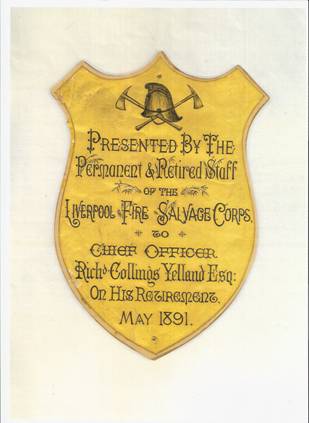 Presented By The
Permanent & Retired Staff
OF THE
Liverpool Fire Salvage Corps.
TO
Chief Officer
Richd Collings Yelland Esq:
On His Retirement,
May 1891.